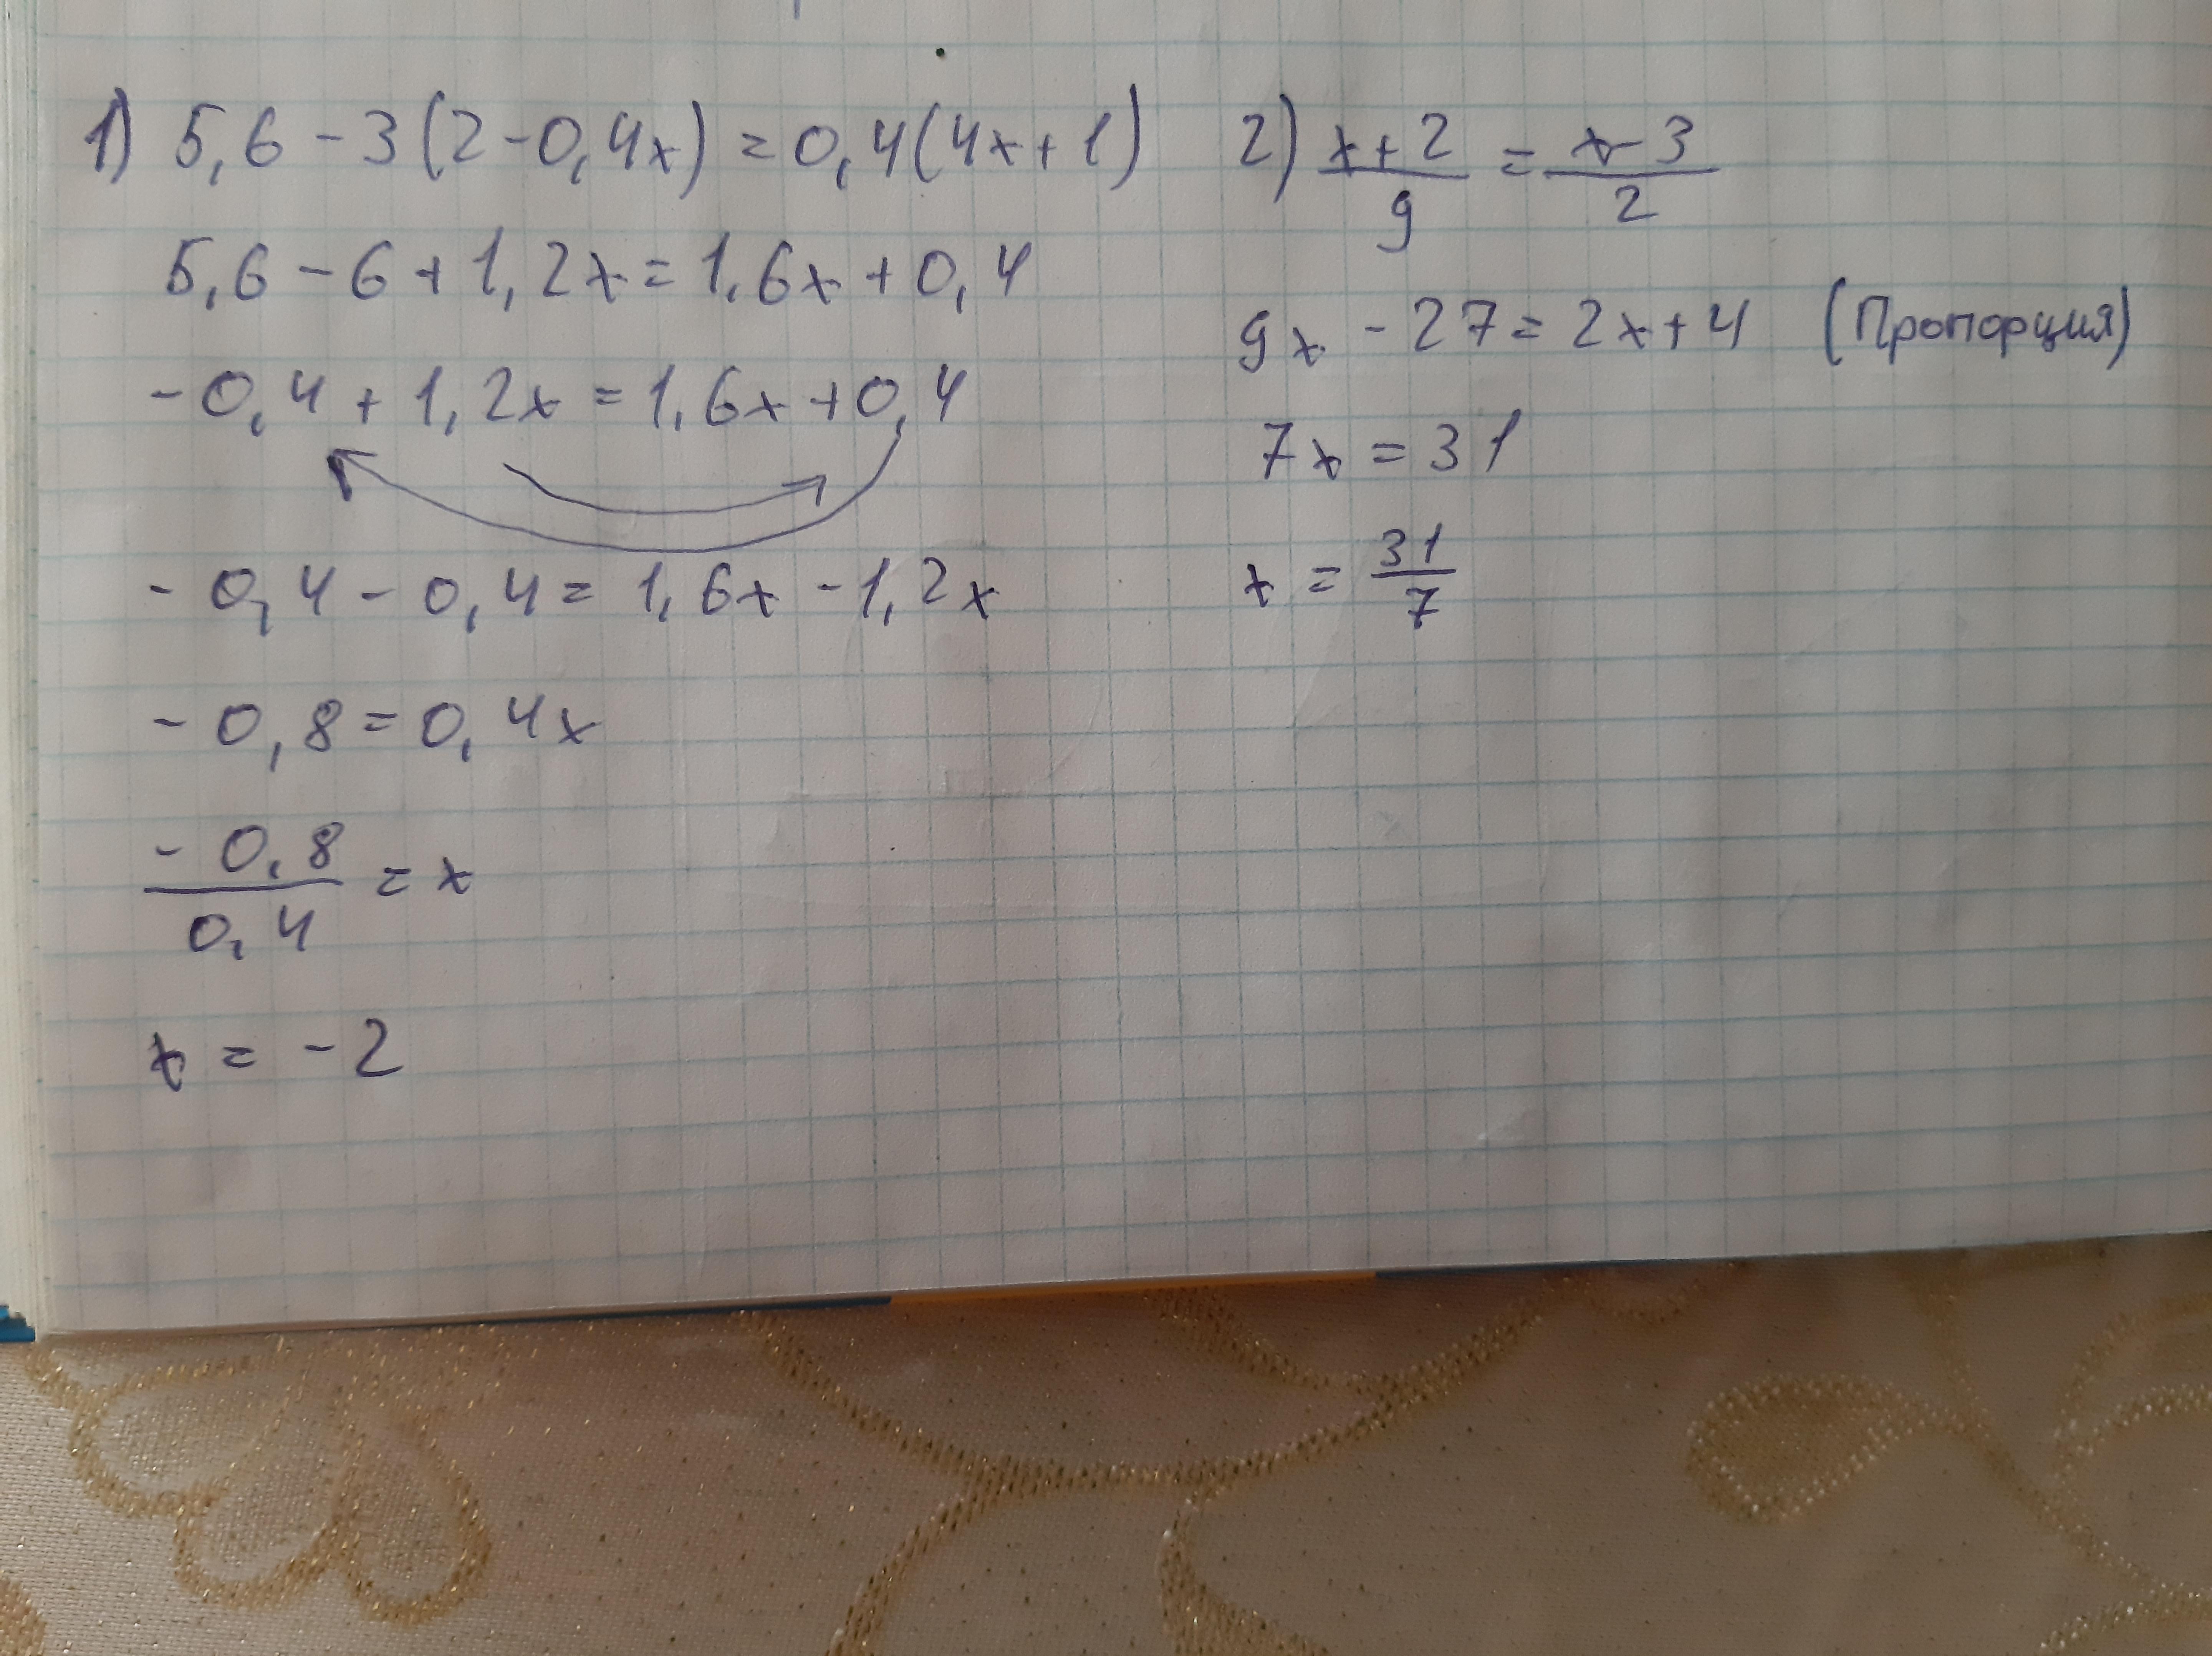 1) 5,6 - 3(2 - 0,4x) = 0,4(4x + 1)
5,6 - 6 + 1,2x = 1,6x + 0,4
- 0,4 + 1,2x = 1,6x + 0,4
- 0,4 - 0,4 = 1,6x - 1,2x
- 0,8 = 0,4x
- 0,8 / 0,4 = x
x = - 2
2) x + 2 / 9 = x - 3 / 2
9x - 27 = 2x + 4 (Пропорция)
7x = 31
x = 31 / 7